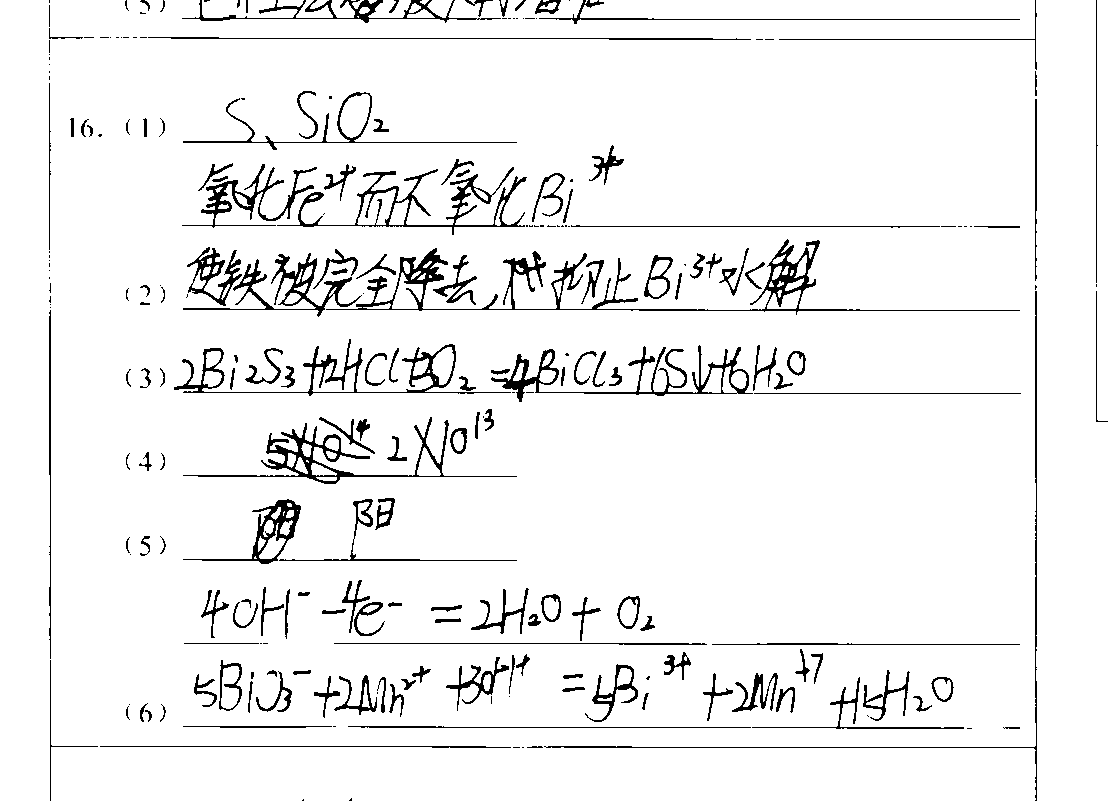 16. (1) S、SiO₂
氧化Fe²⁺而不氧化Bi³⁺
(2) 使铁被完全除去, 抑止Bi³⁺水解
(3) 2Bi₂S₃+12HCl+3O₂=4BiCl₃+6S↓+6H₂O
(4) 2×10¹³
(5) 阳
4OH⁻-4e⁻=2H₂O+O₂
(6) 5BiO₃⁻+2Mn²⁺+30H⁺=5Bi³⁺+2Mn⁺⁷+15H₂O